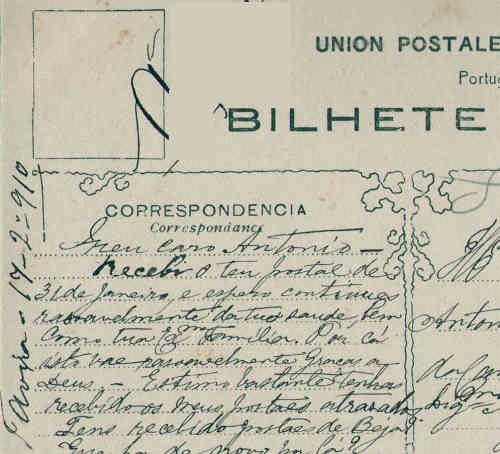 UNION POSTALE
Portu
BILHETE
CORRESPONDENCIA
Correspondance
Meu caro Antonio —
Recebi o teu postal de
31 de Janeiro, e espero continues
rasoavelmente da tua saude, bem
como tua Ex.ma Familia. Por cá
isto vae rasoavelmente graças a
Deus. — Estimo bastante tenhas
recebido os meus postaes atrazados
Tens recebido postaes de Beja?
de novo por lá?
17-2-910
Antoni